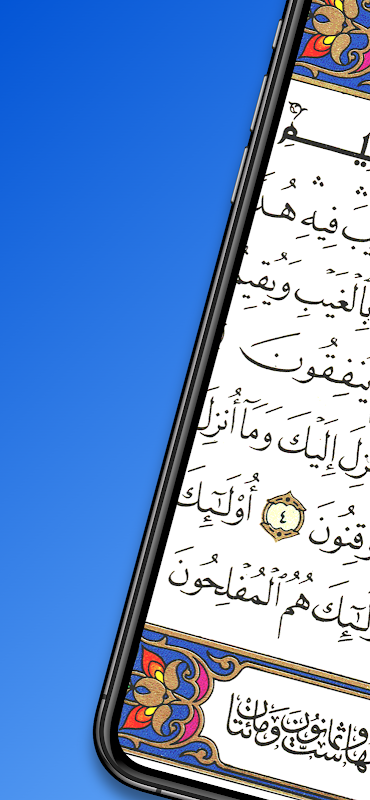 فِيهِ هُدَ
بِٱلْغَيْبِ وَيُقِيمُ
يُنفِقُونَ
نزِلَ إِلَيْكَ وَمَآ أُنزِلَ
وقِنُونَ ٤ أُوْلَٰٓئِكَ
وْلَٰٓئِكَ هُمُ ٱلْمُفْلِحُونَ
وثمانون
ست ومائتان